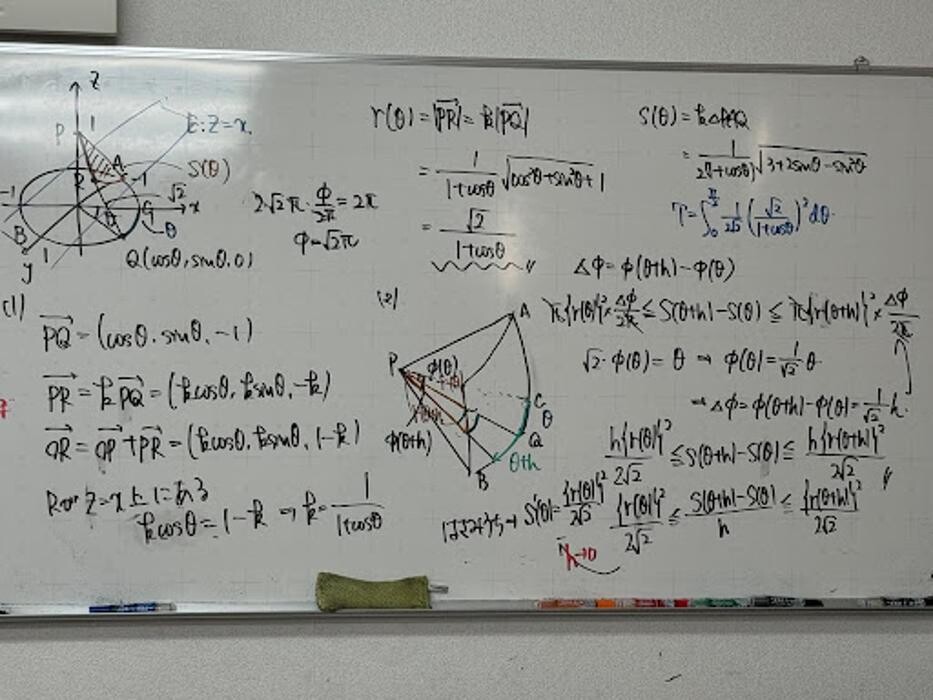 z
P
1
E: z=x
A
S(θ)
R
-1
-1
√2
x
θ
B
y
1
Q(cosθ, sinθ, 0)
2√2π・φ/2π = 2π
φ=√2π
r(θ) = |PR→| = k|PQ→|
= 1/(1+cosθ) √(cos²θ+sin²θ+1)
= √2/(1+cosθ)
S(θ) = k△PAQ
= 1/(2(1+cosθ)) √(3+2sinθ-sin²θ)
T=∫₀^(π/2) 1/(2√2) (√2/(1+cosθ))² dθ
(1)
PQ→ = (cosθ, sinθ, -1)
PR→ = kPQ→ = (kcosθ, ksinθ, -k)
OR→ = OP→ + PR→ = (kcosθ, ksinθ, 1-k)
Rが z=x上にある
kcosθ = 1-k ⇒ k= 1/(1+cosθ)
(2)
A
P
φ(θ)
C
θ
Q
φ(θ+h)
θ+h
B
△φ= φ(θ+h)-φ(θ)
π{r(θ)}²×△φ/2π ≦ S(θ+h)-S(θ) ≦ π{r(θ+h)}²×△φ/2π
√2・φ(θ) = θ ⇒ φ(θ)=1/√2 θ
⇒ △φ= φ(θ+h)-φ(θ)=1/√2 h
h{r(θ)}²/2√2 ≦ S(θ+h)-S(θ) ≦ h{r(θ+h)}²/2√2
はさみうち→ S'(θ)={r(θ)}²/2√2
{r(θ)}²/2√2 ≦ (S(θ+h)-S(θ))/h ≦ {r(θ+h)}²/2√2
h→0